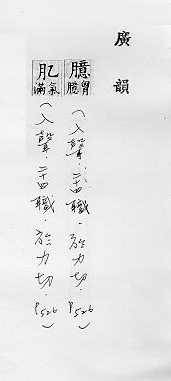 廣韻
臆 胷臆 (入聲.二十四職.於力切.P526)
肊 氣滿 (入聲.二十四職.於力切.P526)